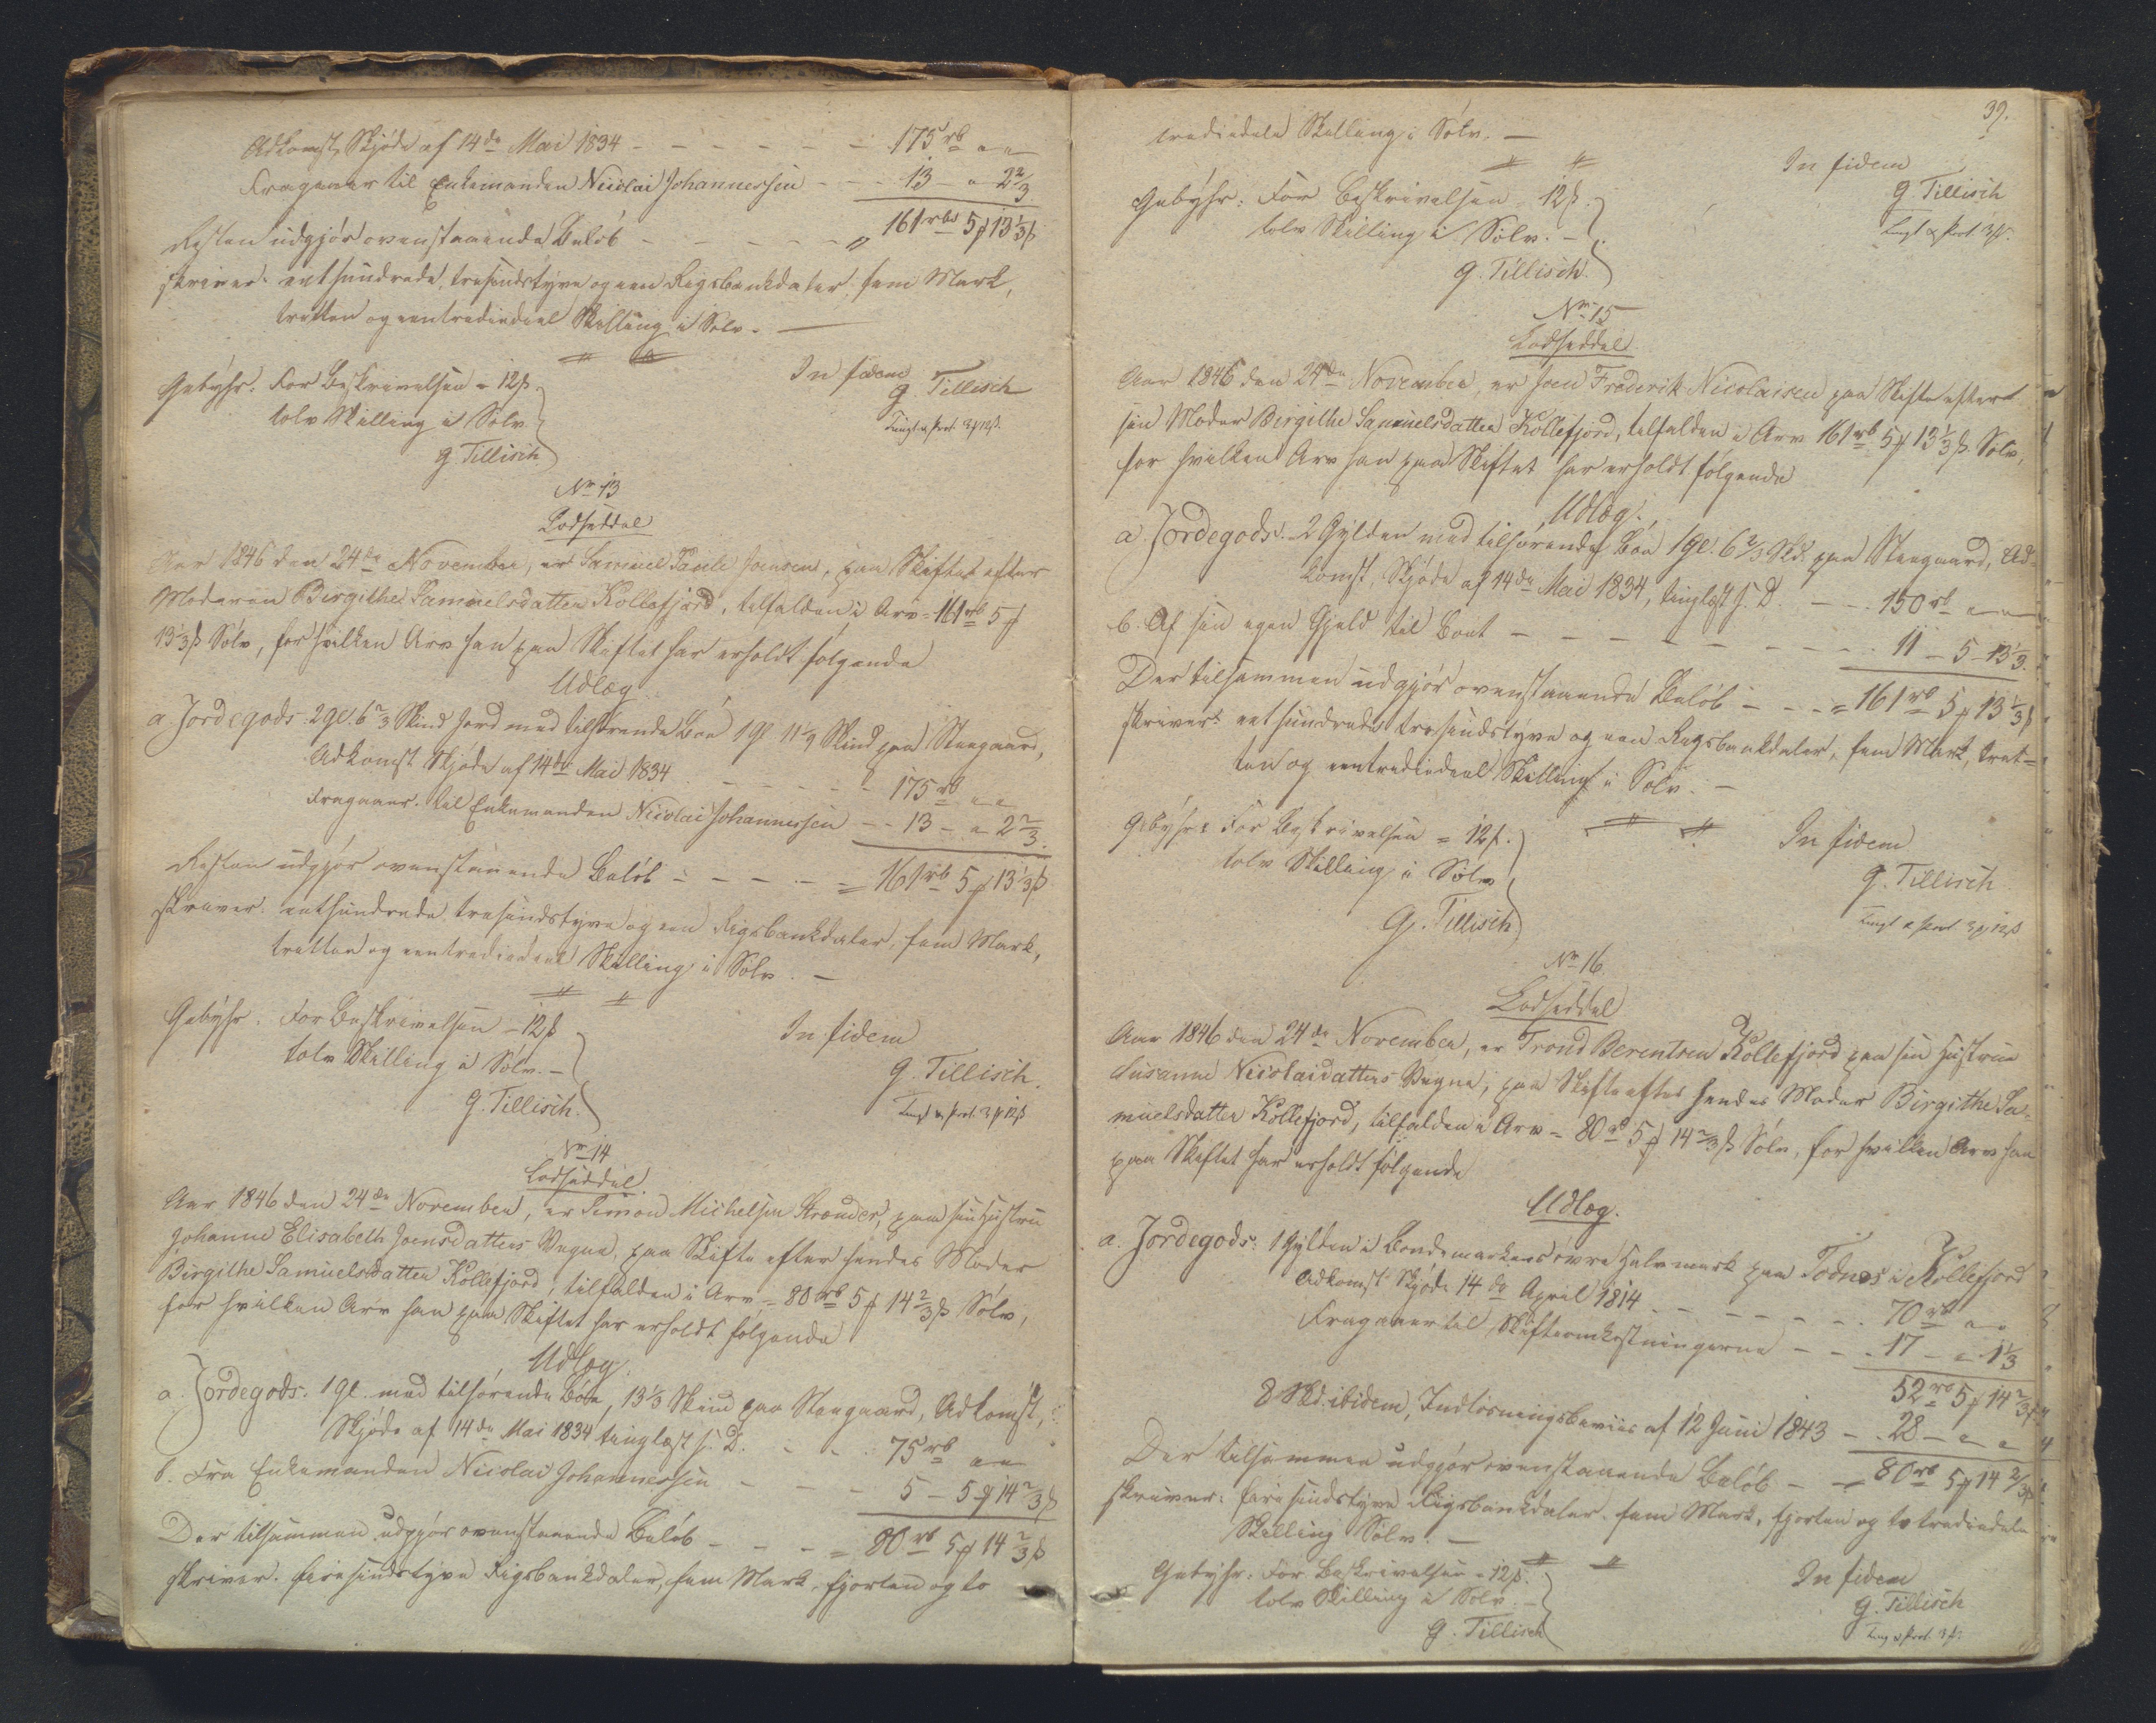 Adkomst, Skjøde af 14de Mai 1834 - - - - - - 175 rb " "
Fragaaer til Enkemanden Nicolai Johannessen - - - 13 - " 2 2/3
Resten udgjør ovenstaaende Beløb - - - - - " 161 rbd 5 # 13 1/3 ß
skriver: eethundrede, tresindstyve og een Rigsbankdaler, fem Mark,
tretten og eentrediedeel Skilling i Sølv. —
Gebyhr. For Beskrivelsen = 12 ß
In fidem
tolv Skilling i Sølv
G. Tillisch
G. Tillisch
No 13
Lodseddel
Aar 1846 den 24de November, er Samuel Joensen, paa Skiftet efter
Moderen Birgithe Samuelsdatter Kollefjord, tilfalden i Arv = 161 rb 5 #
13 1/3 ß Sølv, for hvilken Arv han paa Skiftet har erholdt følgende
Udlæg.
a. Jordegods: 2 Gl. 6 2/3 Skind Jord med tilhørende Böe 1 Gl. 11 1/9 Skind paa Steegaard,
Adkomst Skjøde af 14de Mai 1834 - - - - - 175 rb " "
Fragaaer til Enkemanden Nicolai Johannessen - - 13 - " 2 2/3.
Resten udgjør ovenstaaende Beløb - - - - = 161 rb 5 # 13 1/3 ß
skriver: eethundrede tresindstyve og een Rigsbankdaler, fem Mark,
tretten og eentrediedeel Skilling i Sølv. —
Gebyhr. For Beskrivelsen = 12 ß
In fidem
tolv Skilling i Sølv. -
G. Tillisch.
G. Tillisch.
No 14
Lodseddel
Aar 1846 den 24de November, er Simon Michelsen, paa sin Hustru
Johanne Elisabeth Joensdatters Vegne, paa Skifte efter hendes Moder
Birgithe Samuelsdatter Kollefjord, tilfalden i Arv = 80 rb 5 # 14 2/3 ß Sølv,
for hvilken Arv han paa Skiftet har erholdt følgende
Udlæg.
a. Jordegods: 1 Gl. med tilhørende Böe, 13 1/3 Skind paa Steegaard, Adkomst,
Skjøde af 14de Mai 1834 tinglæst s. D. - - - 75 rb " "
b. Fra Enkemanden Nicolai Johannessen - - - 5 - 5 # 14 2/3 ß
Der tilsammen udgjør ovenstaaende Beløb - - - = 80 rb 5 # 14 2/3 ß
skriver: firesindstyve Rigsbankdaler, fem Mark, fjorten og to
39.
trediedele Skilling i Sølv. —
In fidem
Gebyhr: For Beskrivelsen = 12 ß.
G. Tillisch
tolv Skilling i Sølv. -
G. Tillisch.
No 15
Lodseddel
Aar 1846 den 24de November, er Joen Frederik Nicolaisen paa Skifte efter
sin Moder Birgithe Samuelsdatter Kollefjord, tilfalden i Arv 161 rb 5 # 13 1/3 ß Sølv,
for hvilken Arv han paa Skiftet har erholdt følgende
Udlæg.
a. Jordegods: 2 Gylden med tilhørende Böe 1 Gl. 6 2/3 Skd. paa Steegaard, Ad-
komst, Skjøde af 14de Mai 1834, tinglæst s. D. - - - 150 rb " "
b. Af sin egen Gjeld til Boet - - - - - - - - 11 - 5 - 13 1/3.
Der tilsammen udgjør ovenstaaende Beløb - - - = 161 rb 5 # 13 1/3 ß
skriver: eethundrede tresindstyve og een Rigsbankdaler, fem Mark, tret-
ten og eentrediedeel Skilling i Sølv. —
Gebyhr: For Beskrivelsen = 12 ß.
In fidem
tolv Skilling i Sølv
G. Tillisch
G. Tillisch
No 16.
Lodseddel
Aar 1846 den 24de November, er Trond Berentsen Kollefjord paa sin Hustrue
Susanne Nicolaidatters Vegne, paa Skifte efter hendes Moder Birgithe Sa-
muelsdatter Kollefjord, tilfalden i Arv = 80 rb 5 # 14 2/3 ß Sølv, for hvilken Arv han
paa Skiftet har erholdt følgende
Udlæg.
a. Jordegods: 1 Gylden i Bondemarkens øvre Halvmark paa Todnes i Kollefjord
Adkomst Skjøde 14de April 1814 - - - - - - - 70 rb " "
Fragaaer til Skifteomkostningerne - - - 17 - " 1 1/3
52 rb 5 # 14 2/3 ß
8 Skd. ibidem, Indløsningsbeviis af 12 Juni 1843 - - 28 - " "
Der tilsammen udgjør ovenstaaende Beløb - - = 80 rb 5 # 14 2/3 ß
skriver: firesindstyve Rigsbankdaler, fem Mark, fjorten og to trediedele
Skilling Sølv. —
Gebyhr: For Beskrivelsen = 12 ß.
In fidem
tolv Skilling i Sølv. -
G. Tillisch
G. Tillisch